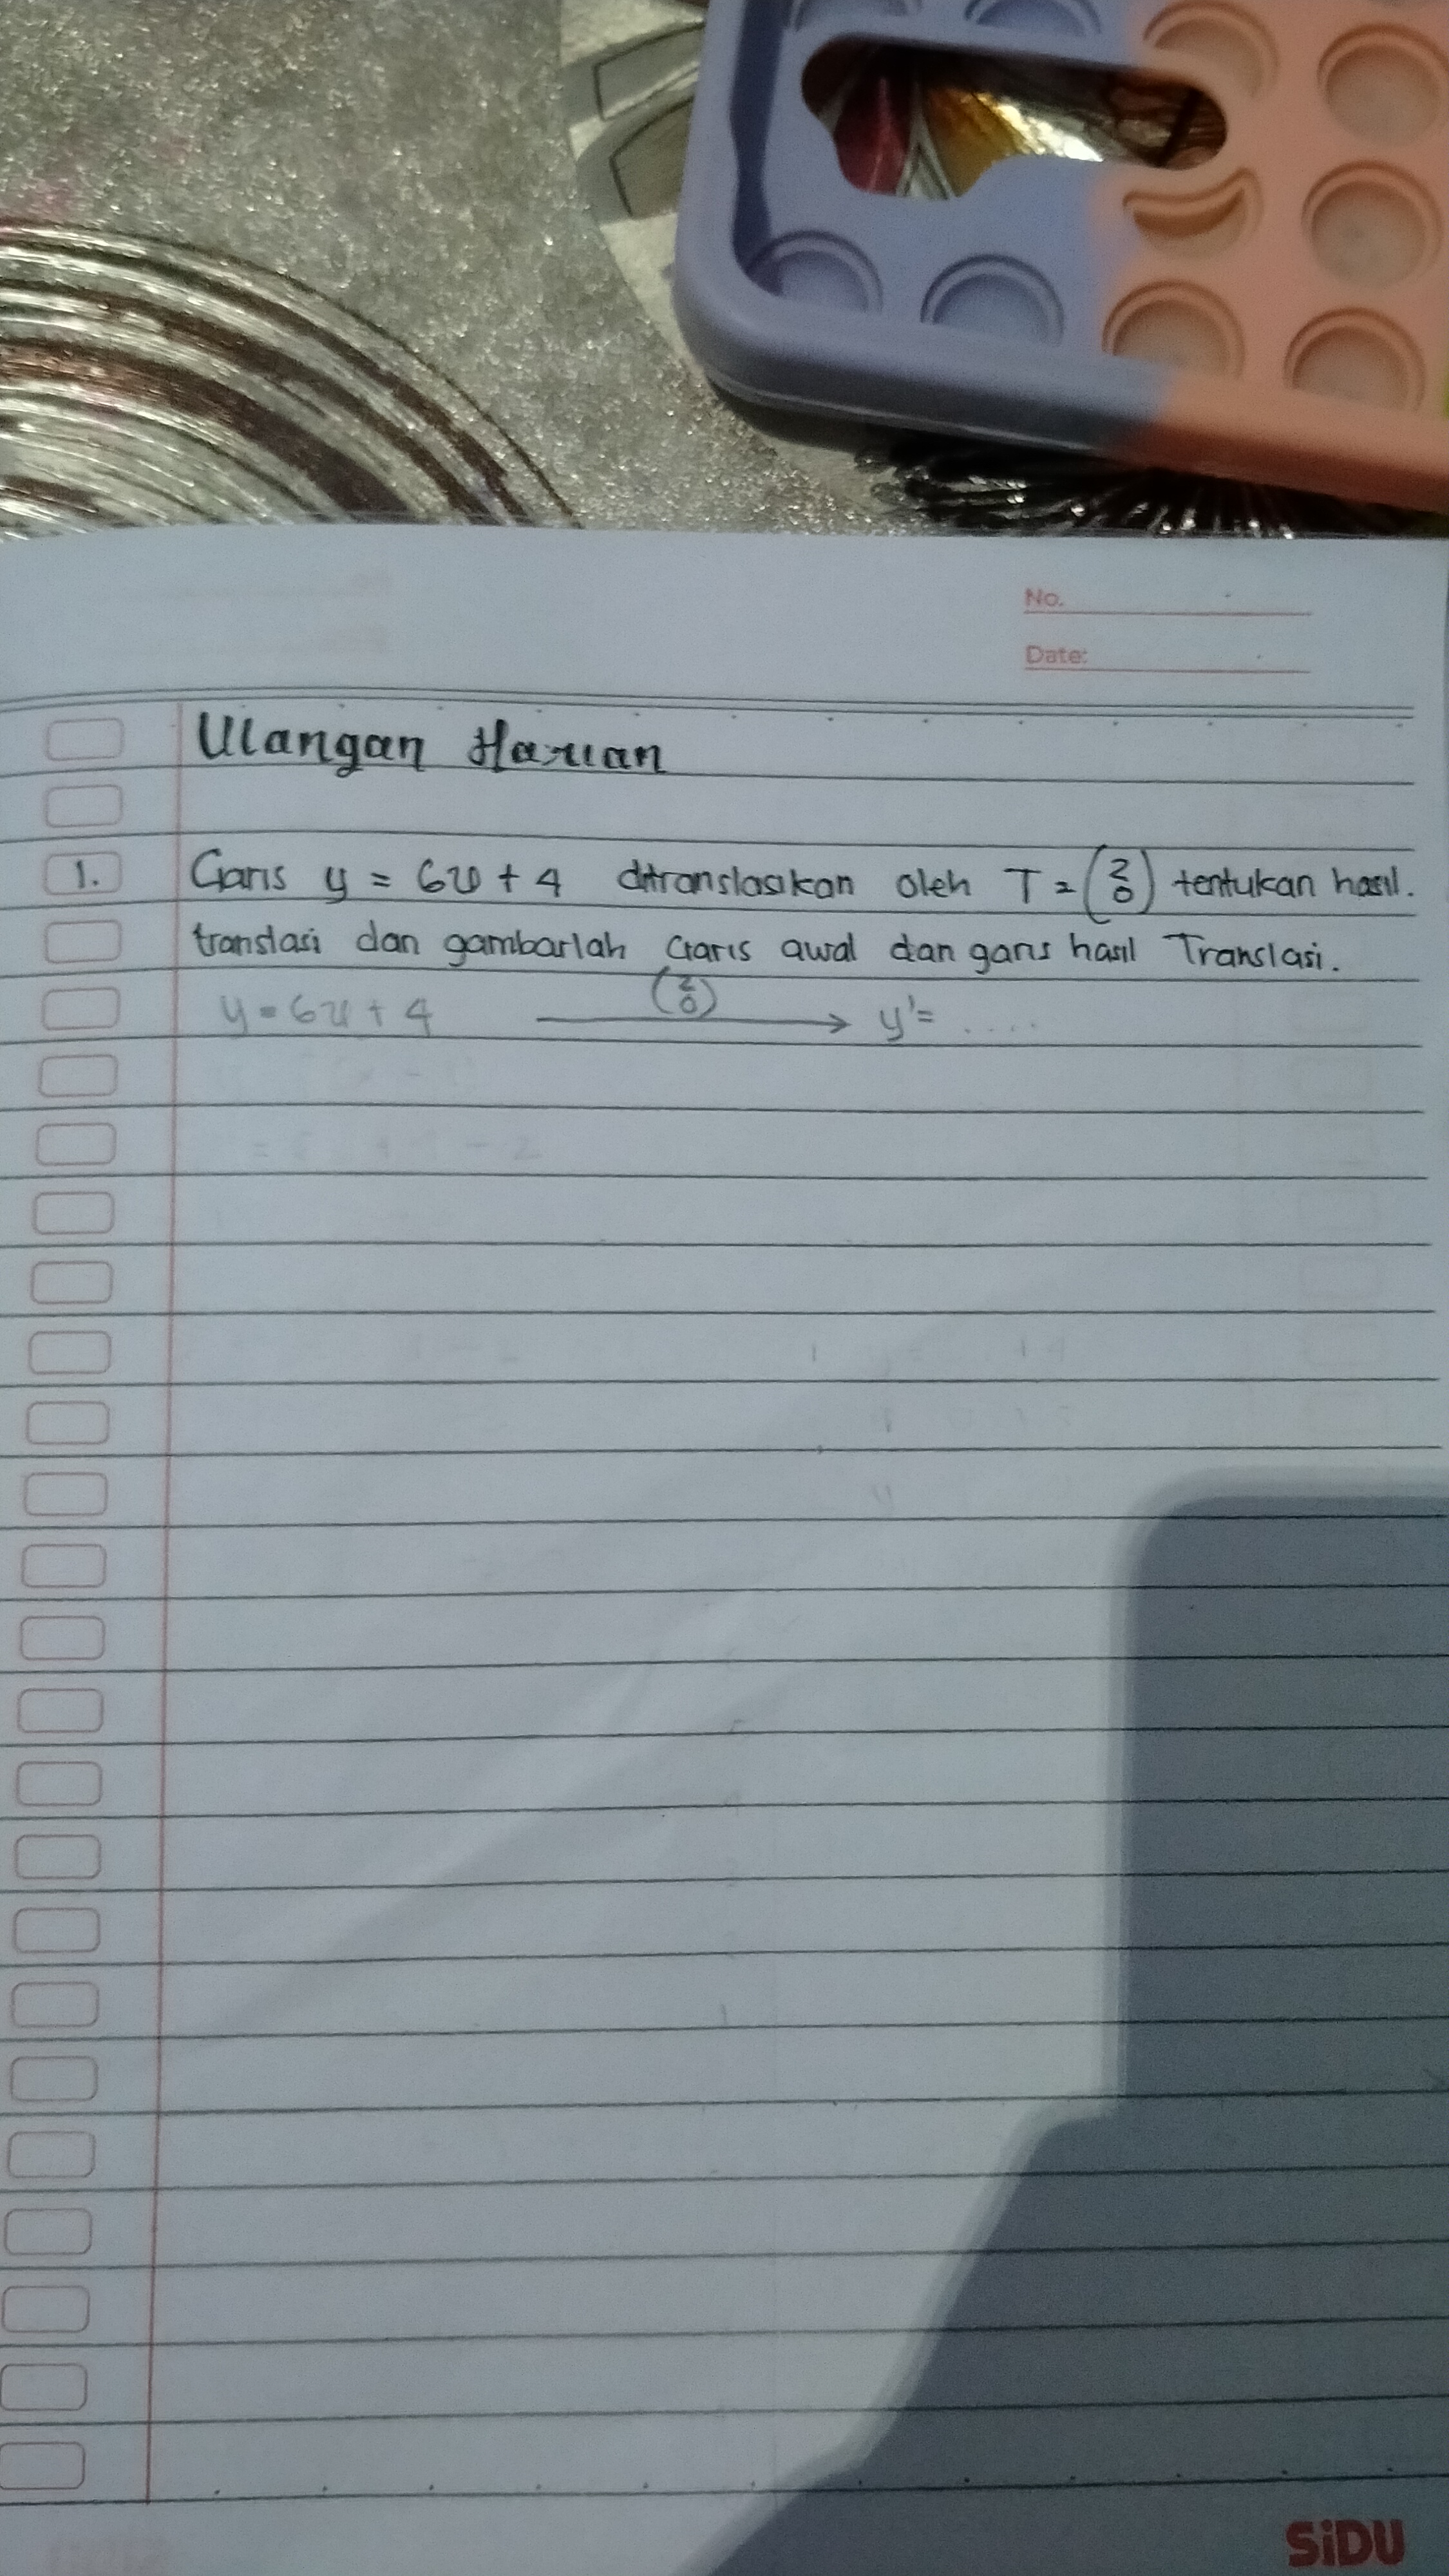 No.
Date:
Ulangan Harian
1. Garis y = 6x + 4 ditranslasikan oleh T = (2 0) tentukan hasil.
translasi dan gambarlah Garis awal dan garis hasil Translasi.
y = 6x + 4 (2 0) → y' = ....
SiDU